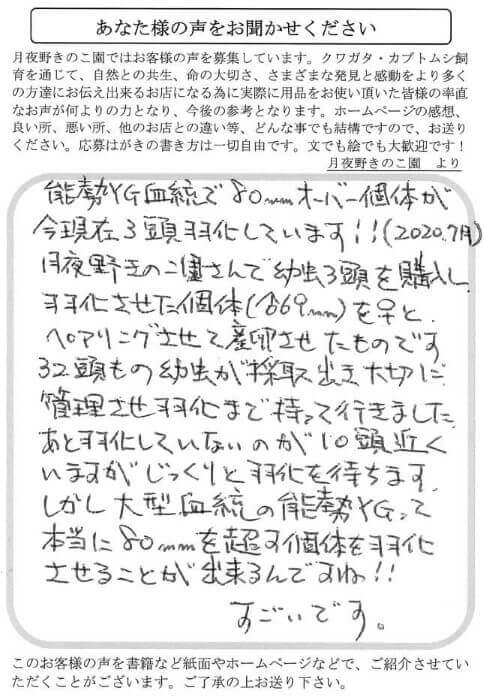 あなた様の声をお聞かせください
月夜野きのこ園ではお客様の声を募集しています。クワガタ・カブトムシ飼
育を通じて、自然との共生、命の大切さ、さまざまな発見と感動をより多く
の方達にお伝え出来るお店になる為に実際に用品をお使い頂いた皆様の率直
なお声が何よりの力となり、今後の参考となります。ホームページの感想、
良い所、悪い所、他のお店との違い等、どんな事でも結構ですので、お送り
ください。応募はがきの書き方は一切自由です。文でも絵でも大歓迎です！
月夜野きのこ園　より
能勢YG血統で80mmオーバー個体が
今現在3頭羽化しています!!(2020.7月)
月夜野きのこ園さんで幼虫3頭を購入し
羽化させた個体(♂69mm)を♀と
ペアリングさせて産卵させたものです
32頭もの幼虫が採取出き大切に
管理させ羽化まで持って行きました。
あと羽化していないのが10頭近く
いますがじっくりと羽化を待ちます。
しかし大型血統の能勢YGって
本当に80mmを超す個体を羽化
させることが出来るんですね!!
すごいです。
このお客様の声を書籍など紙面やホームページなどで、ご紹介させてい
ただくことがございます。ご了承の上お送り下さい。